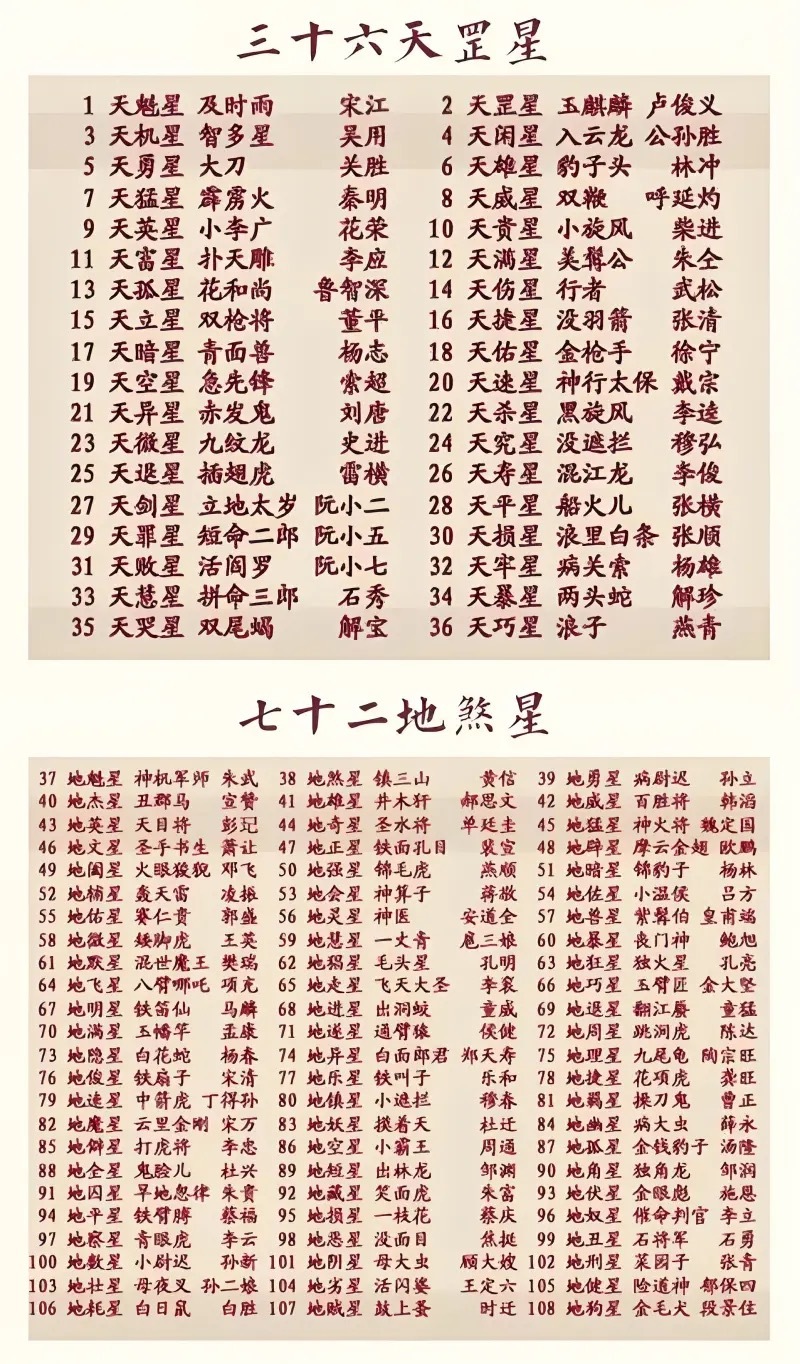 三十六天罡星
1 天魁星 及时雨 宋江 2 天罡星 玉麒麟 卢俊义
3 天机星 智多星 吴用 4 天闲星 入云龙 公孙胜
5 天勇星 大刀 关胜 6 天雄星 豹子头 林冲
7 天猛星 霹雳火 秦明 8 天威星 双鞭 呼延灼
9 天英星 小李广 花荣 10 天贵星 小旋风 柴进
11 天富星 扑天雕 李应 12 天满星 美髯公 朱仝
13 天孤星 花和尚 鲁智深 14 天伤星 行者 武松
15 天立星 双枪将 董平 16 天捷星 没羽箭 张清
17 天暗星 青面兽 杨志 18 天佑星 金枪手 徐宁
19 天空星 急先锋 索超 20 天速星 神行太保 戴宗
21 天异星 赤发鬼 刘唐 22 天杀星 黑旋风 李逵
23 天微星 九纹龙 史进 24 天究星 没遮拦 穆弘
25 天退星 插翅虎 雷横 26 天寿星 混江龙 李俊
27 天剑星 立地太岁 阮小二 28 天平星 船火儿 张横
29 天罪星 短命二郎 阮小五 30 天损星 浪里白条 张顺
31 天败星 活阎罗 阮小七 32 天牢星 病关索 杨雄
33 天慧星 拼命三郎 石秀 34 天暴星 两头蛇 解珍
35 天哭星 双尾蝎 解宝 36 天巧星 浪子 燕青
七十二地煞星
37 地魁星 神机军师 朱武 38 地煞星 镇三山 黄信 39 地勇星 病尉迟 孙立
40 地杰星 丑郡马 宣赞 41 地雄星 井木犴 郝思文 42 地威星 百胜将 韩滔
43 地英星 天目将 彭玘 44 地奇星 圣水将 单廷圭 45 地猛星 神火将 魏定国
46 地文星 圣手书生 萧让 47 地正星 铁面孔目 裴宣 48 地辟星 摩云金翅 欧鹏
49 地阖星 火眼狻猊 邓飞 50 地强星 锦毛虎 燕顺 51 地暗星 锦豹子 杨林
52 地辅星 轰天雷 凌振 53 地会星 神算子 蒋敬 54 地佐星 小温侯 吕方
55 地佑星 赛仁贵 郭盛 56 地灵星 神医 安道全 57 地兽星 紫髯伯 皇甫端
58 地微星 矮脚虎 王英 59 地慧星 一丈青 扈三娘 60 地暴星 丧门神 鲍旭
61 地默星 混世魔王 樊瑞 62 地猖星 毛头星 孔明 63 地狂星 独火星 孔亮
64 地飞星 八臂哪吒 项充 65 地走星 飞天大圣 李衮 66 地巧星 玉臂匠 金大坚
67 地明星 铁笛仙 马麟 68 地进星 出洞蛟 童威 69 地退星 翻江蜃 童猛
70 地满星 玉幡竿 孟康 71 地遂星 通臂猿 侯健 72 地周星 跳涧虎 陈达
73 地隐星 白花蛇 杨春 74 地异星 白面郎君 郑天寿 75 地理星 九尾龟 陶宗旺
76 地俊星 铁扇子 宋清 77 地乐星 铁叫子 乐和 78 地捷星 花项虎 龚旺
79 地速星 中箭虎 丁得孙 80 地镇星 小遮拦 穆春 81 地羁星 操刀鬼 曹正
82 地魔星 云里金刚 宋万 83 地妖星 摸着天 杜迁 84 地幽星 病大虫 薛永
85 地僻星 打虎将 李忠 86 地空星 小霸王 周通 87 地孤星 金钱豹子 汤隆
88 地全星 鬼脸儿 杜兴 89 地短星 出林龙 邹渊 90 地角星 独角龙 邹润
91 地囚星 旱地忽律 朱贵 92 地藏星 笑面虎 朱富 93 地伏星 金眼彪 施恩
94 地平星 铁臂膊 蔡福 95 地损星 一枝花 蔡庆 96 地奴星 催命判官 李立
97 地察星 青眼虎 李云 98 地恶星 没面目 焦挺 99 地丑星 石将军 石勇
100 地数星 小尉迟 孙新 101 地阴星 母大虫 顾大嫂 102 地刑星 菜园子 张青
103 地壮星 母夜叉 孙二娘 104 地劣星 活闪婆 王定六 105 地健星 险道神 郁保四
106 地耗星 白日鼠 白胜 107 地贼星 鼓上蚤 时迁 108 地狗星 金毛犬 段景住